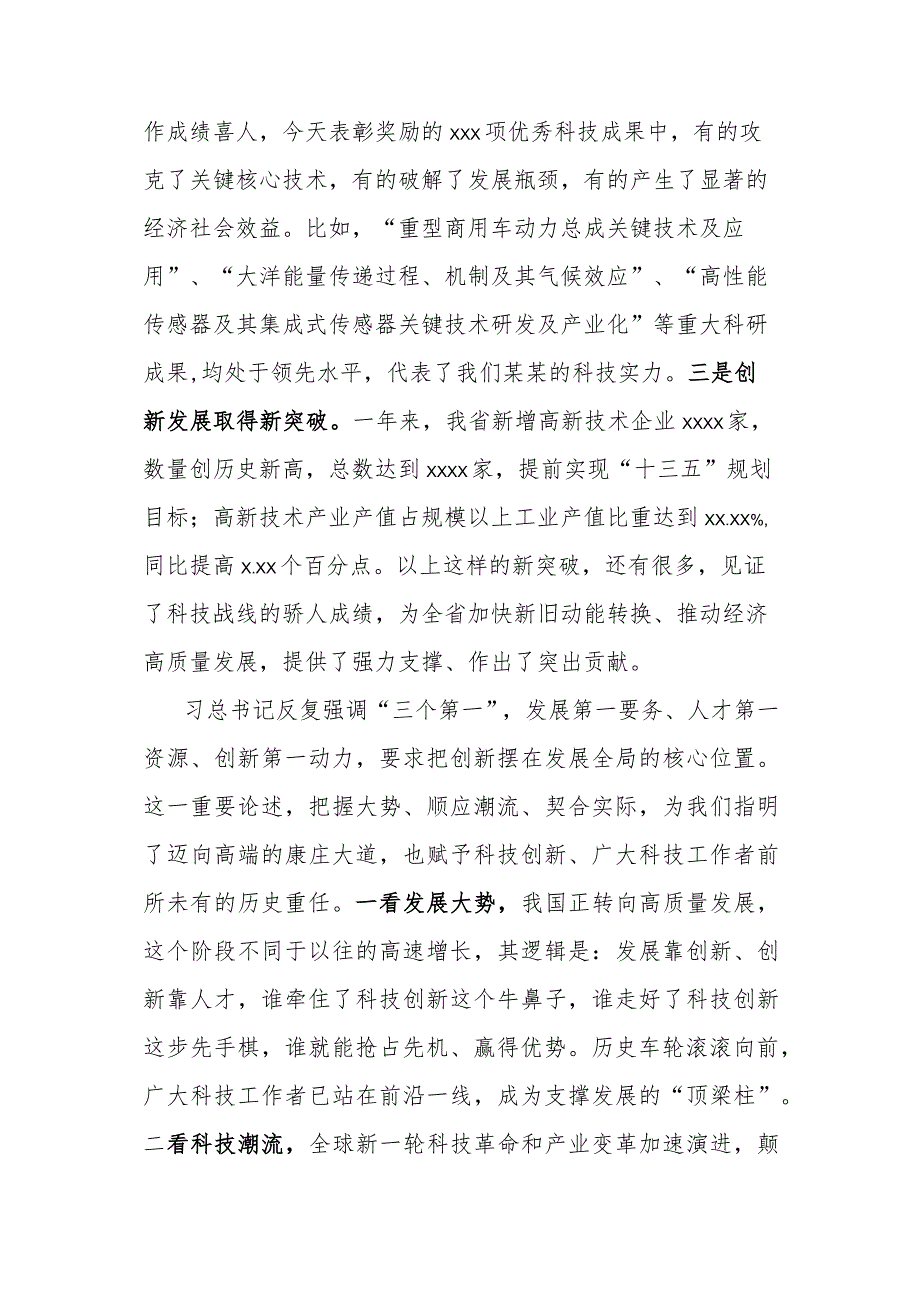 作成绩喜人，今天表彰奖励的 xxx 项优秀科技成果中，有的攻
克了关键核心技术，有的破解了发展瓶颈，有的产生了显著的
经济社会效益。比如，“重型商用车动力总成关键技术及应
用”、“大洋能量传递过程、机制及其气候效应”、“高性能
传感器及其集成式传感器关键技术研发及产业化”等重大科研
成果,均处于领先水平，代表了我们某某的科技实力。三是创
新发展取得新突破。一年来，我省新增高新技术企业 xxxx 家，
数量创历史新高，总数达到 xxxx 家，提前实现“十三五”规划
目标；高新技术产业产值占规模以上工业产值比重达到 xx.xx%,
同比提高 x.xx 个百分点。以上这样的新突破，还有很多，见证
了科技战线的骄人成绩，为全省加快新旧动能转换、推动经济
高质量发展，提供了强力支撑、作出了突出贡献。
习总书记反复强调“三个第一”，发展第一要务、人才第一
资源、创新第一动力，要求把创新摆在发展全局的核心位置。
这一重要论述，把握大势、顺应潮流、契合实际，为我们指明
了迈向高端的康庄大道，也赋予科技创新、广大科技工作者前
所未有的历史重任。一看发展大势，我国正转向高质量发展，
这个阶段不同于以往的高速增长，其逻辑是：发展靠创新、创
新靠人才，谁牵住了科技创新这个牛鼻子，谁走好了科技创新
这步先手棋，谁就能抢占先机、赢得优势。历史车轮滚滚向前，
广大科技工作者已站在前沿一线，成为支撑发展的“顶梁柱”。
二看科技潮流，全球新一轮科技革命和产业变革加速演进，颠